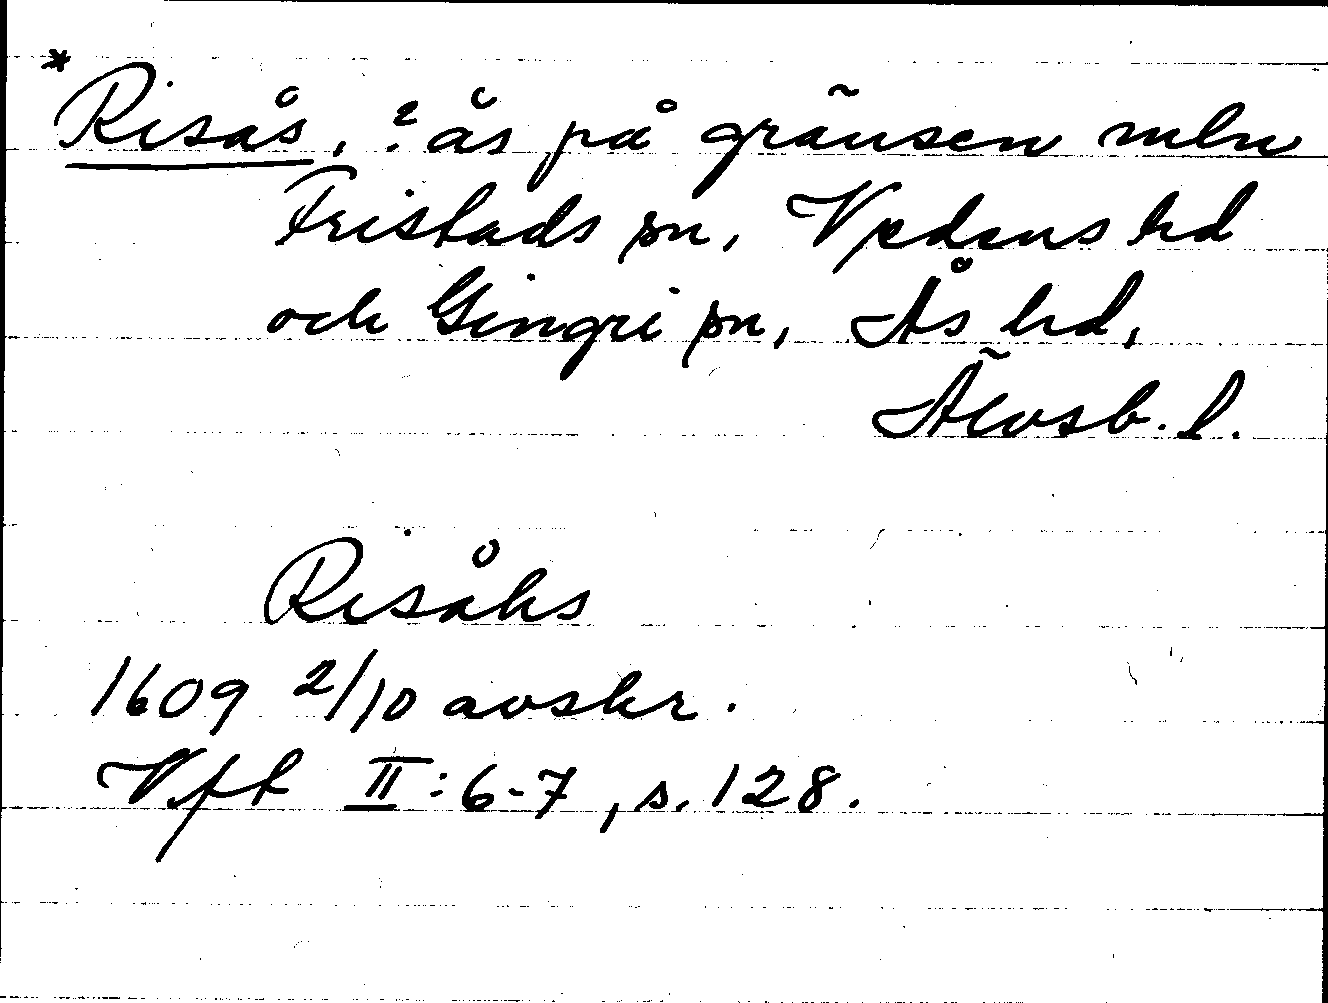 *Risås, ? ås på gränsen mln
Fristads sn, Vedens hd
och Gingri sn, Ås hd,
Älvsb. l.
Risåhs
1609 2/10 avskr.
Vft II:6-7, s. 128.